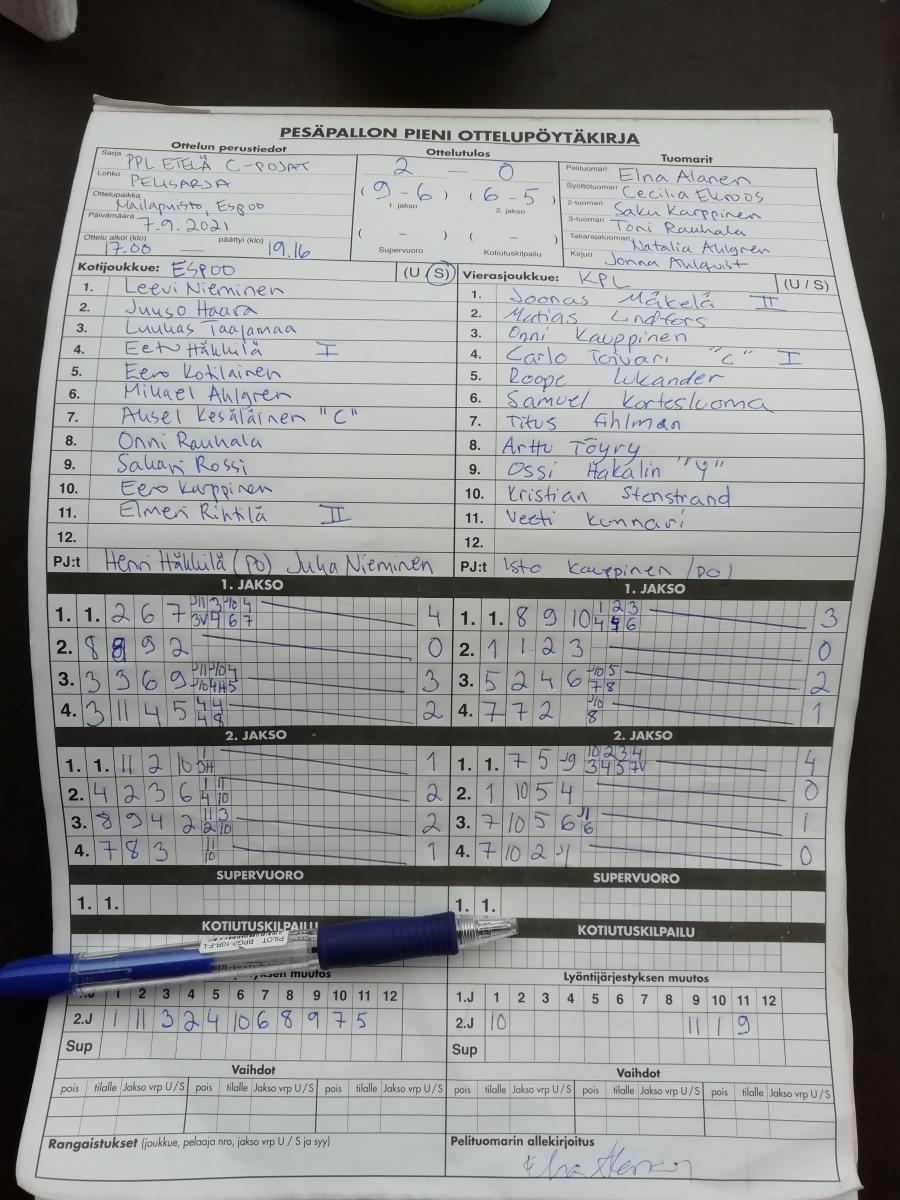 PESÄPALLON PIENI OTTELUPÖYTÄKIRJA
Ottelun perustiedot
Sarja PPL ETELÄ C-POJAT
Lohko PELISARJA
Ottelupaikka Mailapuisto, Espoo
Päivämäärä 7.9.2021
Ottelu alkoi (klo) 17.00 — päättyi (klo) 19.16
Ottelutulos
2 — 0
(9 - 6) (6 - 5)
1. jakso 2. jakso
( – ) ( – )
Supervuoro Kotiutuskilpailu
Tuomarit
Pelituomari Elna Alanen
Syöttötuomari Cecilia Ekroos
2-tuomari Saku Karppinen
3-tuomari Toni Rauhala
Takarajatuomari Natalia Ahlgren
Kirjuri Jonna Ahlqvist
Kotijoukkue: ESPOO (U S)
1. Leevi Nieminen
2. Juuso Haara
3. Luukas Taajamaa
4. Eetu Häkkilä I
5. Eero Kotilainen
6. Mikael Ahlgren
7. Aksel Kesäläinen "C"
8. Onni Rauhala
9. Sakari Rossi
10. Eero Karppinen
11. Elmeri Rihtilä II
12.
PJ:t Henri Häkkilä (PO) Juha Nieminen
Vierasjoukkue: KPL (U / S)
1. Joonas Mäkelä II
2. Matias Lindfors
3. Onni Kauppinen
4. Carlo Toivari "C" I
5. Roope Lukander
6. Samuel Kortesluoma
7. Titus Fihlman
8. Arttu Töyry
9. Ossi Hakalin
10. Kristian Stenstrand
11. Veeti Kunnari
12.
PJ:t Isto Kauppinen (PO)
1. JAKSO
1. 1. 2 6 7 4
2. 8 8 9 2 0
3. 3 3 6 9 3
4. 3 11 4 5 2
1. JAKSO
1. 1. 8 9 10 1 2 3 3
2. 1 1 2 3 0
3. 5 2 4 6 2
4. 7 7 2 1
2. JAKSO
1. 1. 11 2 10 1
2. 4 2 3 6 2
3. 8 9 4 2 2
4. 7 8 3 11 10 1
2. JAKSO
1. 1. 7 5 10 2 3 4 4
2. 1 10 5 4 0
3. 7 10 5 6 1
4. 7 10 2 0
SUPERVUORO
1. 1.
SUPERVUORO
1. 1.
KOTIUTUSKILPAILU
KOTIUTUSKILPAILU
PILOT
muutos
1 2 3 4 5 6 7 8 9 10 11 12
2.J 1 11 3 2 4 10 6 8 9 7 5
Sup
Lyöntijärjestyksen muutos
1.J 1 2 3 4 5 6 7 8 9 10 11 12
2.J 10 11 1 9
Sup
Vaihdot
pois tilalle Jakso vrp U / S pois tilalle Jakso vrp U / S pois tilalle Jakso vrp U / S
Vaihdot
pois tilalle Jakso vrp U / S pois tilalle Jakso vrp U / S pois tilalle Jakso vrp U / S
Rangaistukset (joukkue, pelaaja nro, jakso vrp U / S ja syy)
Pelituomarin allekirjoitus